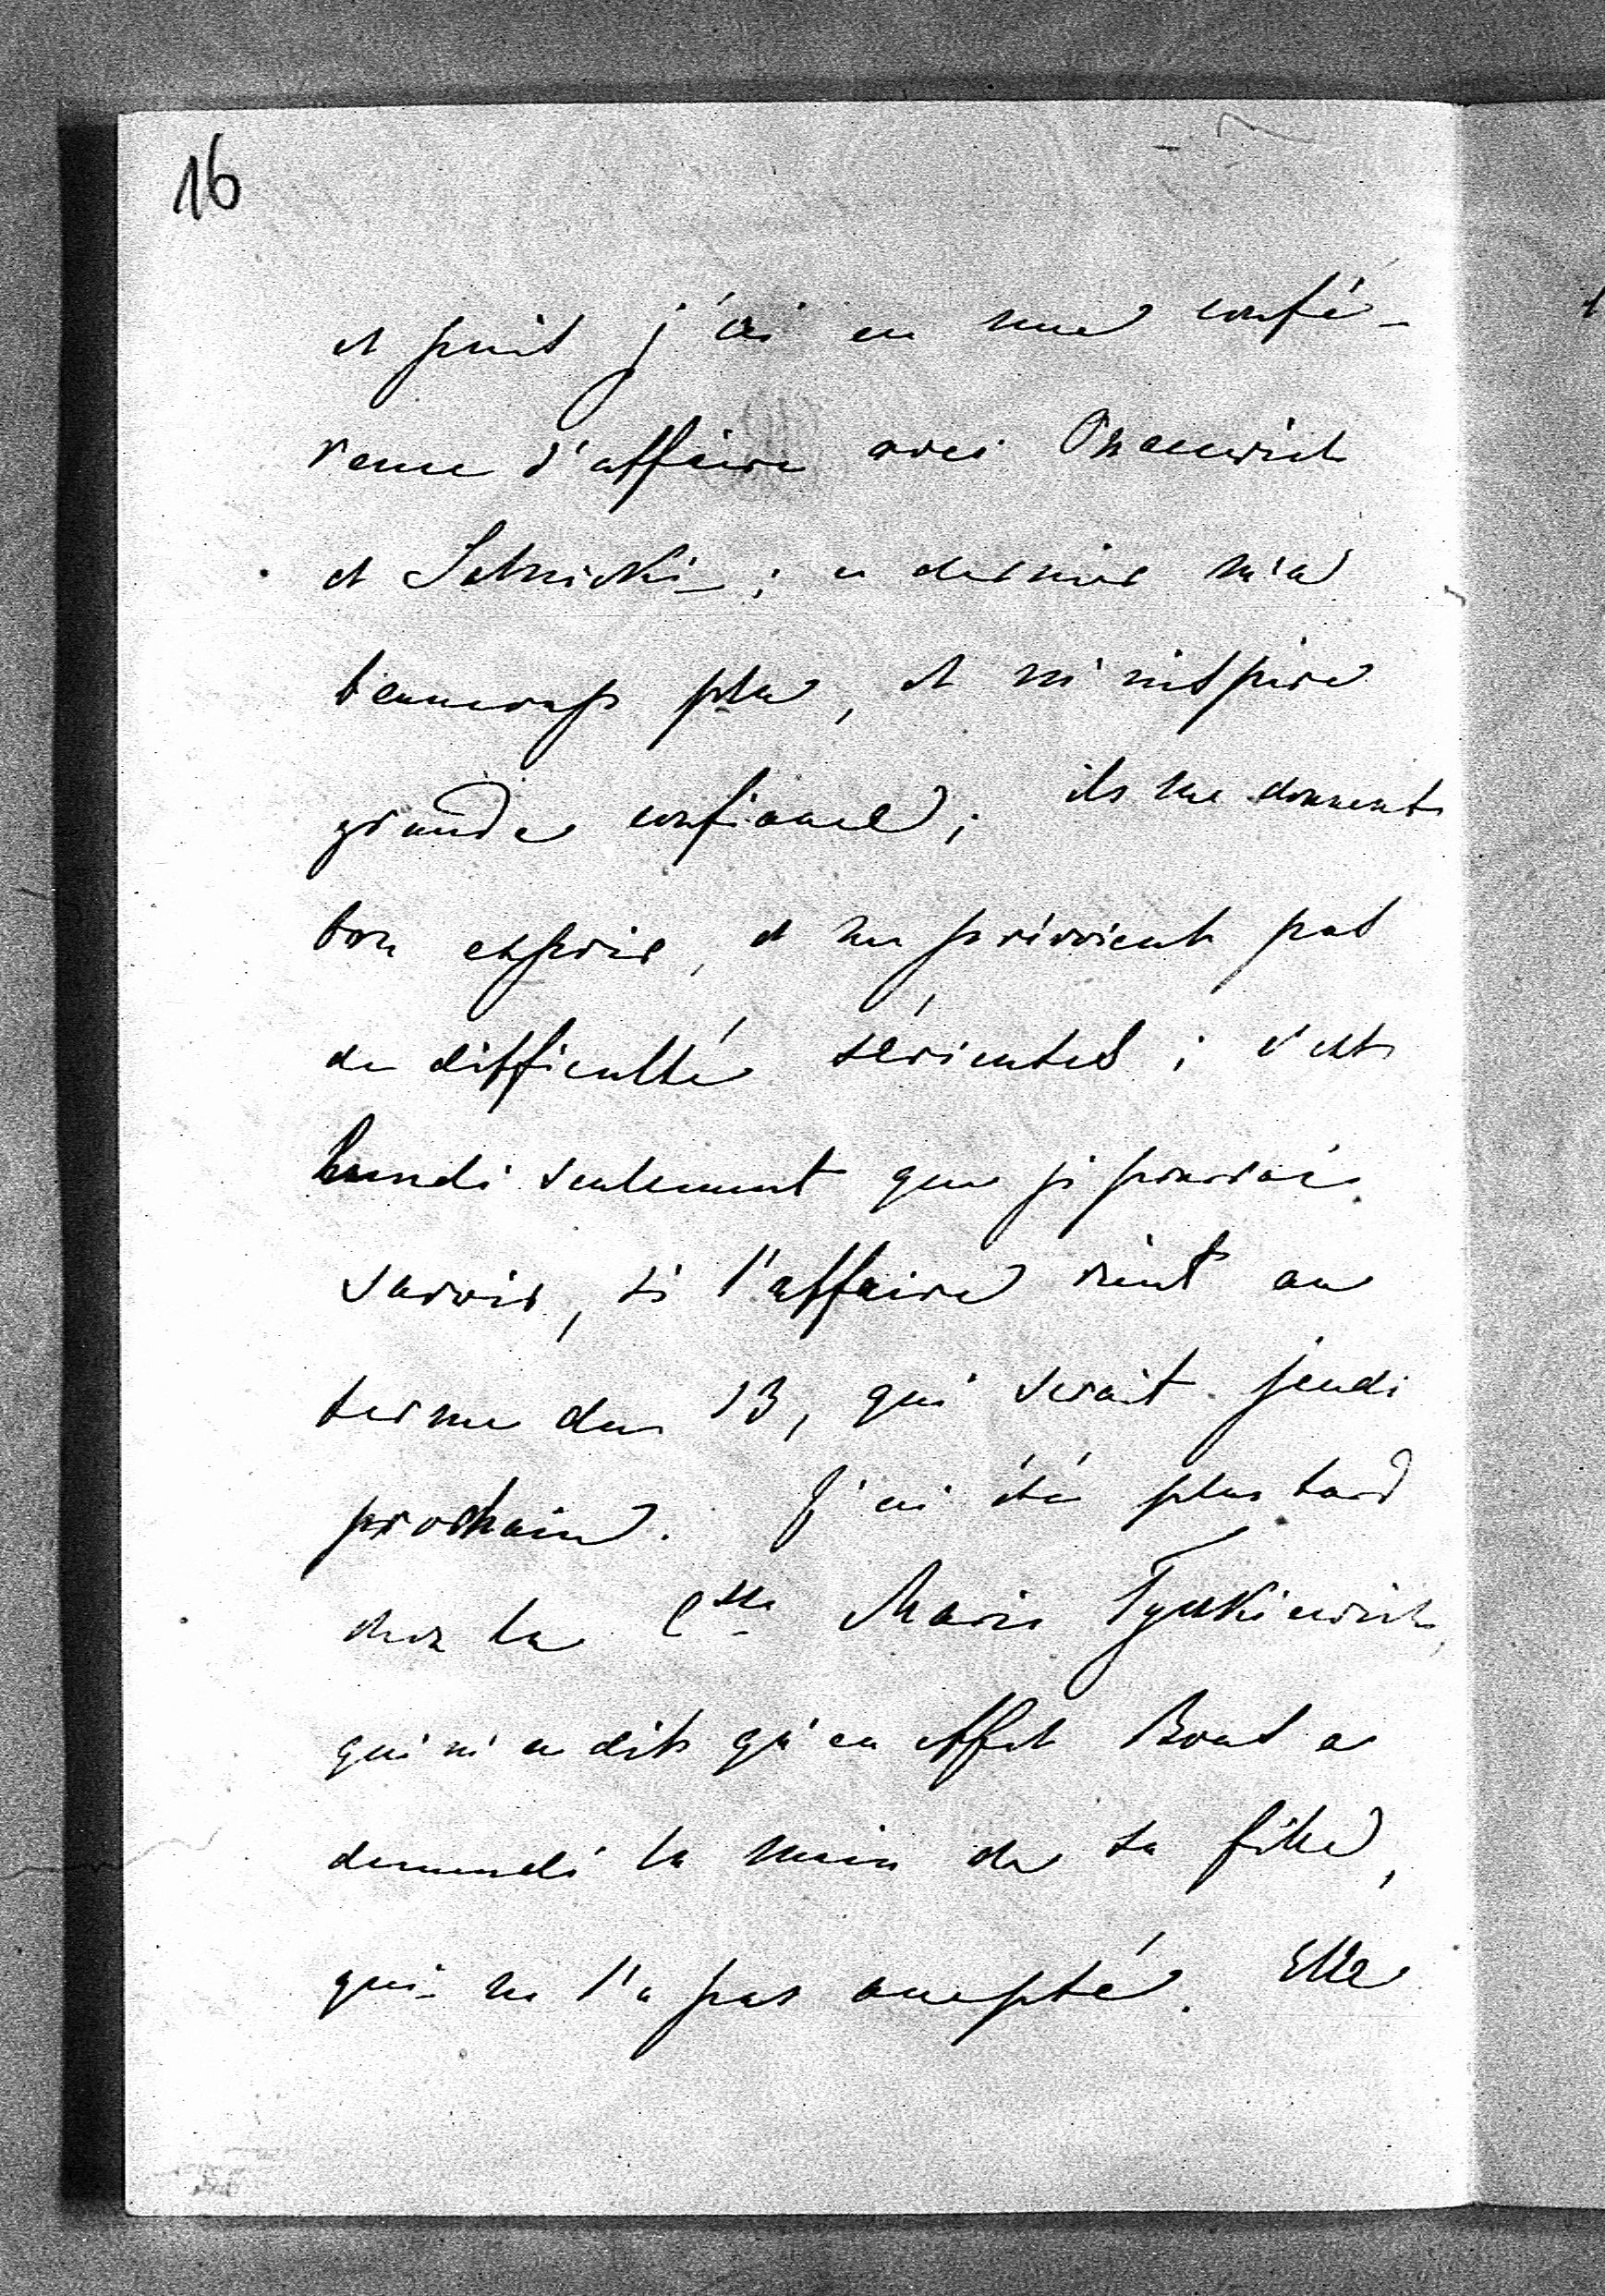 16
et puis j'ai eu une confé-
rence d'affaire avec
et ; ce dernier m'a
beaucoup plu, et m'inspire
grande confiance; ils me donnent
bon espoir, et ne prévoient pas
de difficulté sérieuses; c'est
lundi seulement que je pourrai
savoir, si l'affaire vient au
terme du 13, qui serait jeudi
prochain. J'ai été plus tard
chez la Csse Marie Tyszkiewicz,
qui m'a dit qu'en effet a
demandé la main de sa fille,
qui ne l'a pas accepté. Elle